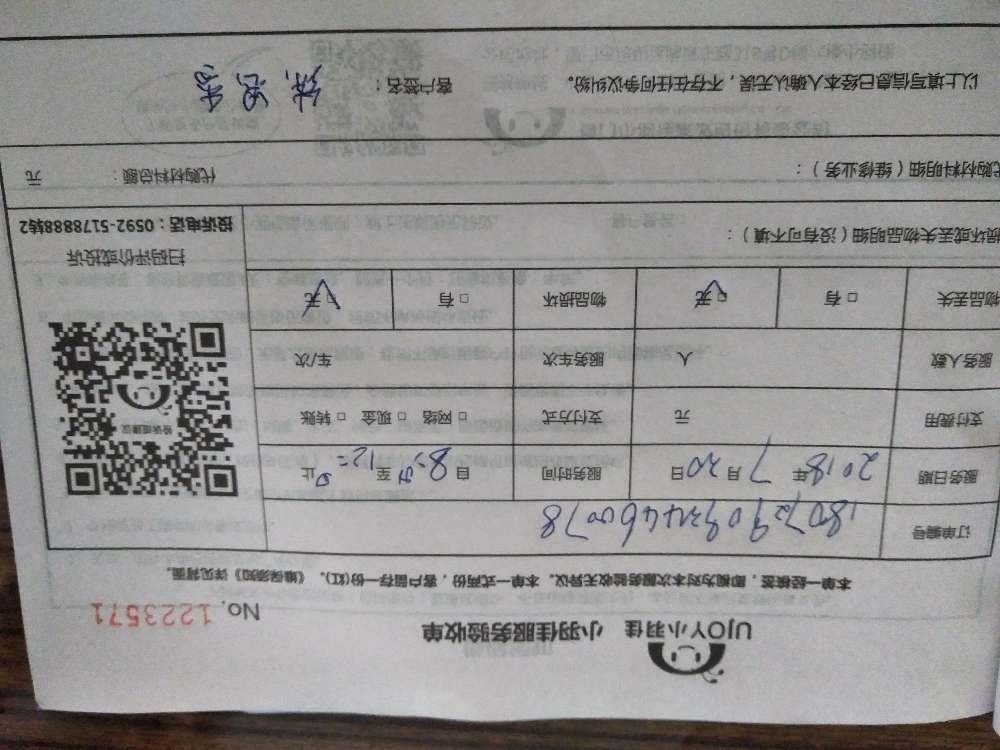 UJOY小羽佳 小羽佳服务验收单
No. 1223571
本单一经核签，即视为对本次服务验收无异议。本单一式两份，客户留存一份(红)。《维保须知》详见背面。
订单编号
服务日期 2018年7月20日 服务时间 自8:00至12:00止
支付费用 元 支付方式 □ 网络 □ 现金 □ 转账
服务人数 人 服务车次 车/次
物品丢失 □ 有 □ 无 物品损坏 □ 有 □ 无
投诉或建议
扫码评价或投诉
投诉电话：0592-5178888转2
损坏或丢失物品明细（没有可不填）：
代购材料明细（维修业务）： 代购材料总额： 元
以上填写信息已经本人确认无误，不存在任何争议纠纷。 客户签名：